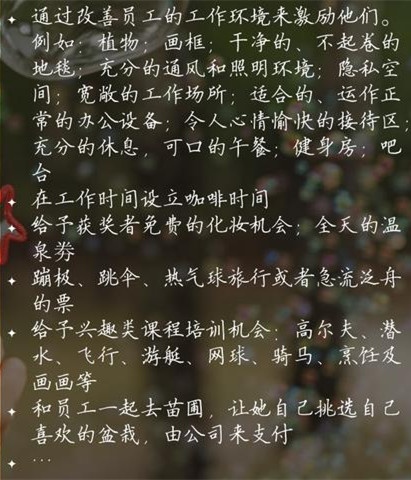 ✦ 通过改善员工的工作环境来激励他们。
例如：植物；画框；干净的、不起卷的
地毯；充分的通风和照明环境；隐私空
间；宽敞的工作场所；适合的、运作正
常的办公设备；令人心情愉快的接待区；
充分的休息，可口的午餐；健身房；吧
台
✦ 在工作时间设立咖啡时间
✦ 给予获奖者免费的化妆机会；全天的温
泉券
✦ 蹦极、跳伞、热气球旅行或者急流泛舟
的票
✦ 给予兴趣类课程培训机会：高尔夫、潜
水、飞行、游艇、网球、骑马、烹饪及
画画等
✦ 和员工一起去苗圃，让她自己挑选自己
喜欢的盆栽，由公司来支付
✦ …